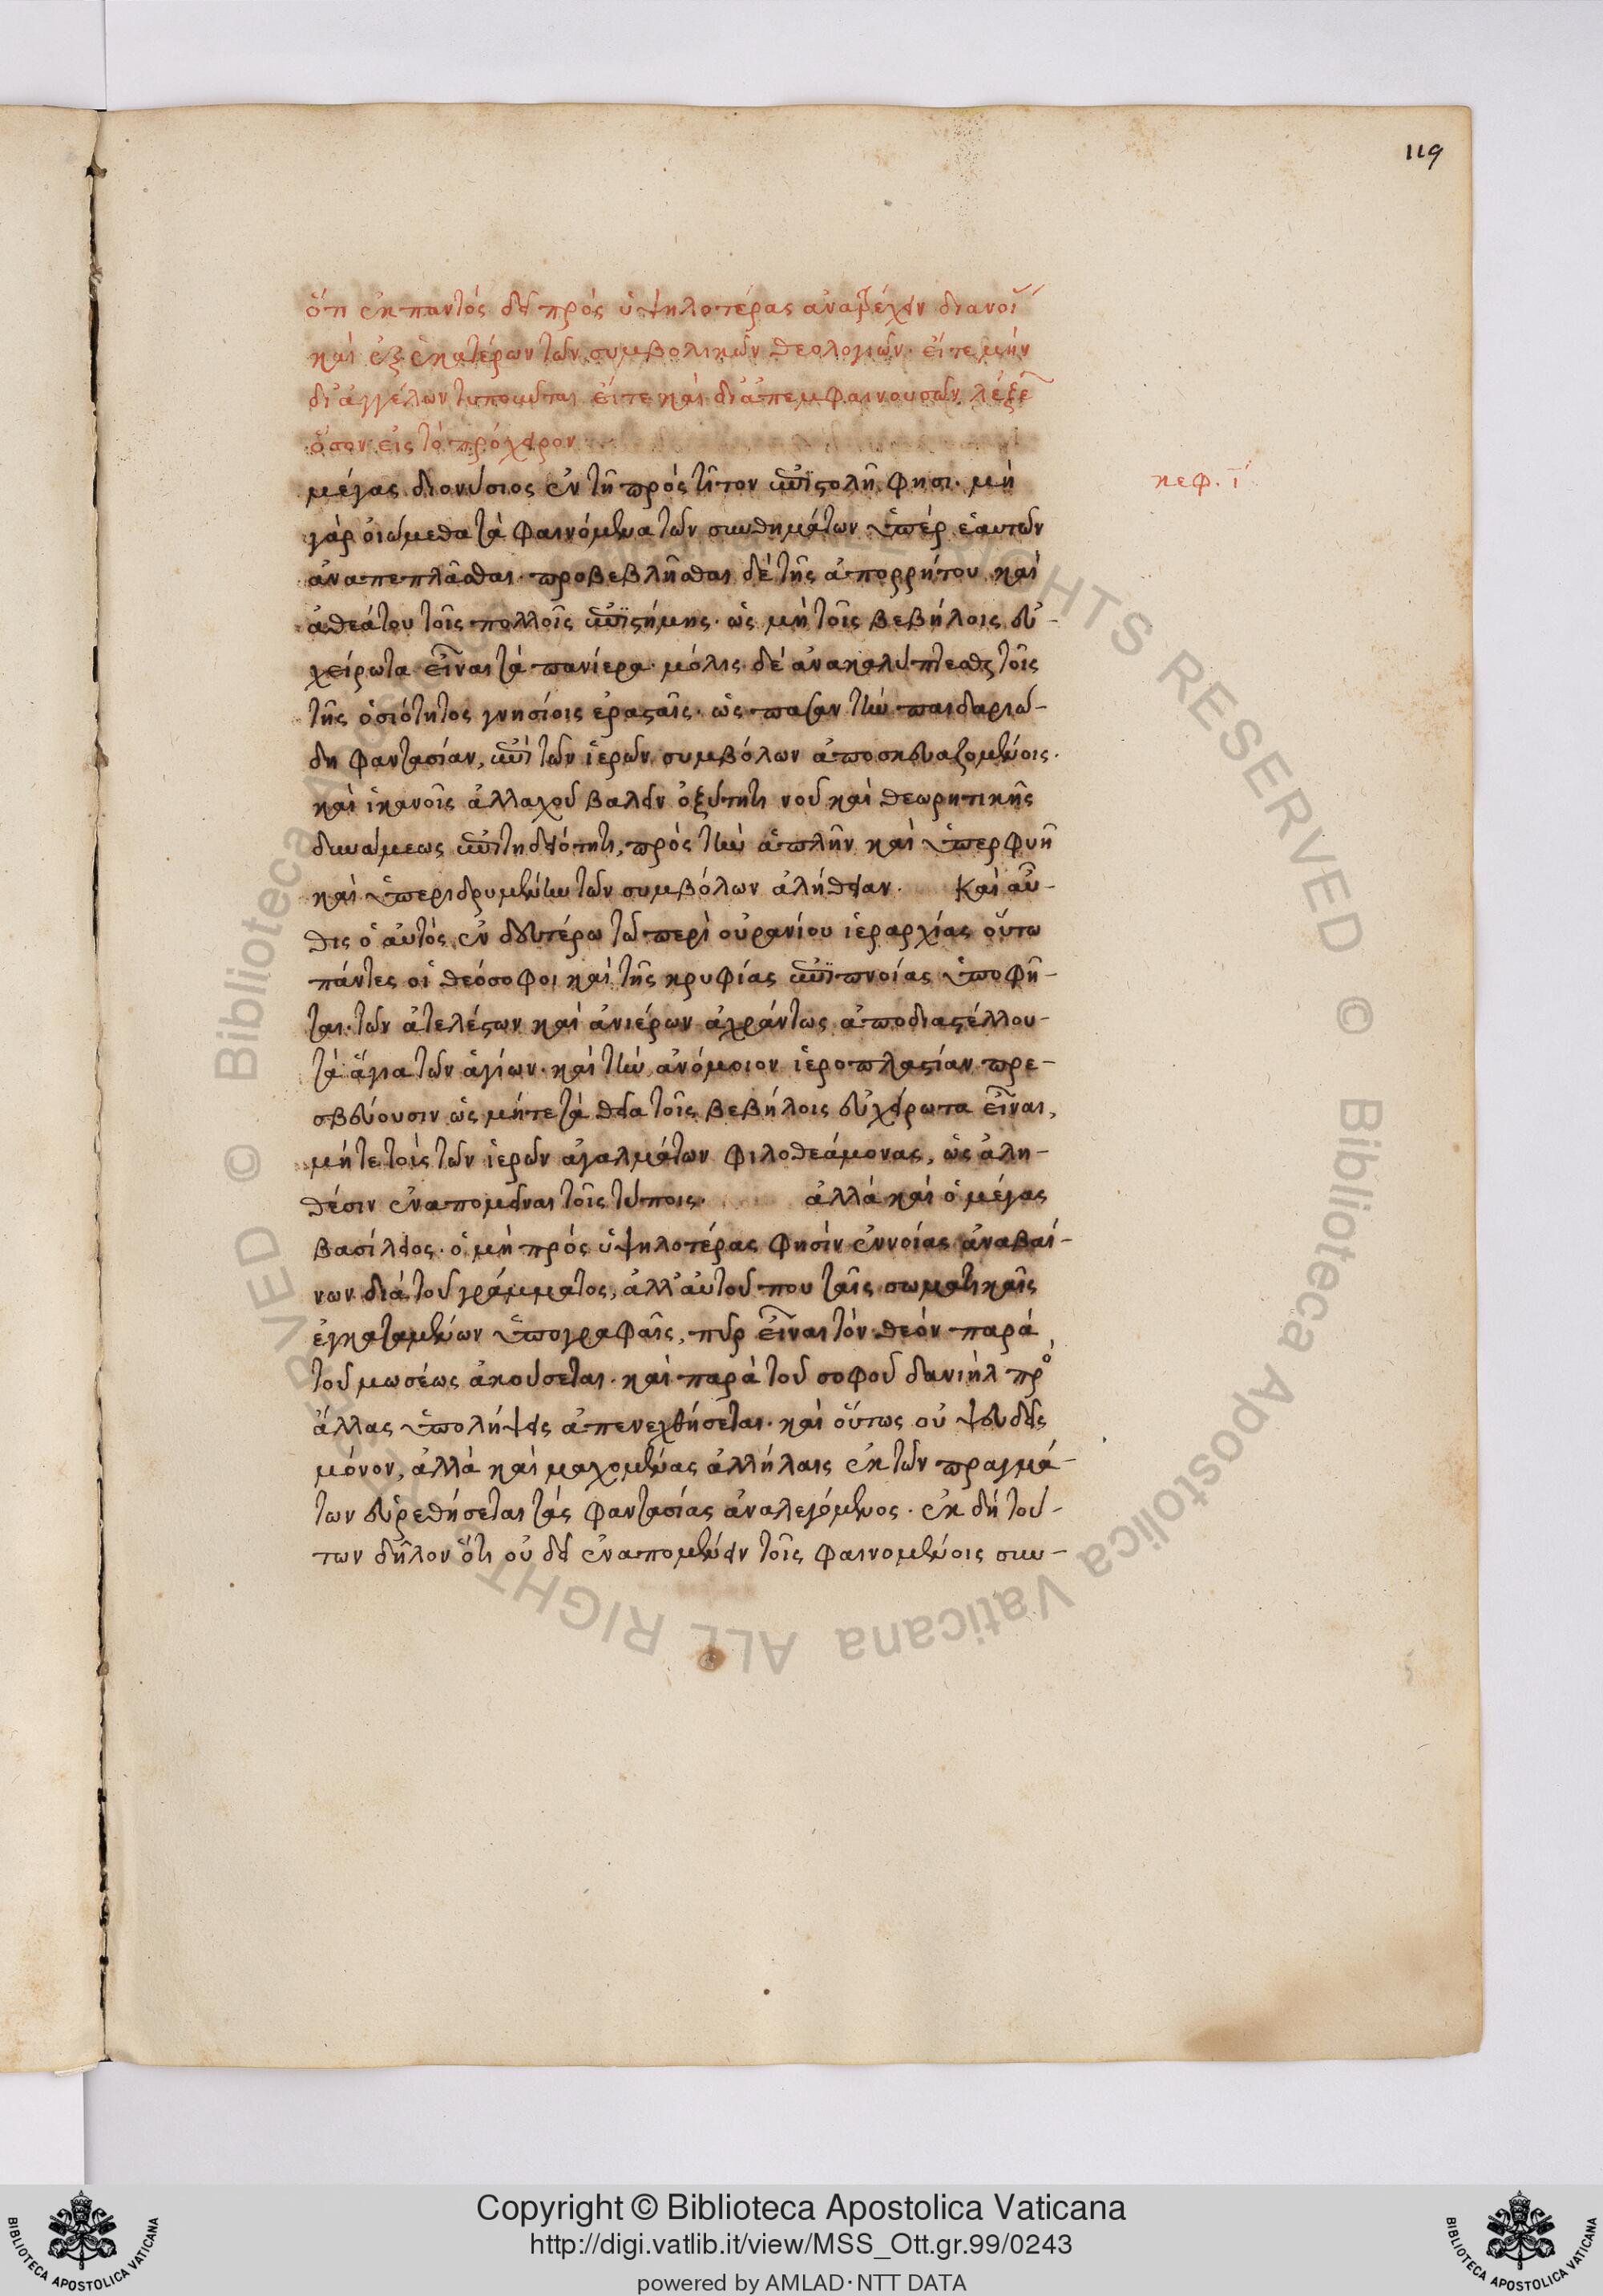 119
ὅτι ἐκ παντὸς δεῖ πρὸς ὑψηλοτέρας ἀνατρέχειν διανοί
καὶ ἐξ ἑκατέρων τῶν συμβολικῶν θεολογιῶν· εἴτε μὴν
δι' ἀγγέλων τυποῦνται εἴτε καὶ δι' ἀπεμφαινουσῶν λέξε
ὅσον εἰς τὸ πρόχειρον
μέγας διονύσιος ἐν τῆ πρὸς τίτον ἐπιστολῆ φησι· μὴ
κεφ. ι
γὰρ οἰώμεθα τὰ φαινόμενα τῶν συνθημάτων ὑπὲρ ἑαυτῶν
ἀναπεπλᾶσθαι· προβεβλῆσθαι δὲ τῆς ἀπορρήτου καὶ
ἀθεάτου τοῖς πολλοῖς ἐπιστήμης· ὡς μὴ τοῖς βεβήλοις εὐ-
χείρωτα εἶναι τὰ πανίερα· μόλις δὲ ἀνακαλύπτεσθαι τοῖς
τῆς ὁσιότητος γνησίοις ἐρασταῖς· ὡς πᾶσαν τὴν παιδαριώ-
δη φαντασίαν, ἐπὶ τῶν ἱερῶν συμβόλων ἀποσκευαζομένοις·
καὶ ἱκανοῖς ἀλλαχοῦ βαλεῖν ὀξύτητι νοῦ καὶ θεωρητικῆς
δυνάμεως ἐπιτηδειότητι, πρὸς τὴν ἁπλῆν καὶ ὑπερφυῆ
καὶ ὑπεριδρυμένην τῶν συμβόλων ἀλήθειαν. Καὶ αὖ-
θις ὁ αὐτὸς ἐν δευτέρω τῶ περὶ οὐρανίου ἱεραρχίας οὕτω
πάντες οἱ θεόσοφοι καὶ τῆς κρυφίας ἐπιπνοίας ὑποφῆ-
ται· τῶν ἀτελέστων καὶ ἀνιέρων ἀχράντως ἀποδιαστέλλου-
τὰ ἅγια τῶν ἁγίων· καὶ τὴν ἀνόμοιον ἱεροπλαστίαν πρε-
σβεύουσιν ὡς μήτε τὰ θεῖα τοῖς βεβήλοις εὐχείρωτα εἶναι,
μήτε τοὺς τῶν ἱερῶν ἀγαλμάτων φιλοθεάμονας, ὡς ἀλη-
θέσιν ἐναπομεῖναι τοῖς τύποις· ἀλλὰ καὶ ὁ μέγας
βασίλειος· ὁ μὴ πρὸς ὑψηλοτέρας φησὶν ἐννοίας ἀναβαί-
νων διὰ τοῦ γράμματος, ἀλλ' αὐτοῦ που ταῖς σωματικαῖς
ἐγκαταμένων ὑπογραφαῖς, πῦρ εἶναι τὸν θεὸν παρὰ
τοῦ μωσέως ἀκούσεται· καὶ παρὰ τοῦ σοφοῦ δανιὴλ πρὸ
ἄλλας ὑπολήψεις ἀπενεχθήσεται· καὶ οὕτως οὐ ψευδεῖς
μόνον, ἀλλὰ καὶ μαχομένας ἀλλήλαις ἐκ τῶν πραγμά-
των εὑρεθήσεται τὰς φαντασίας ἀναλεγόμενος. ἐκ δὴ τού-
των δῆλον ὅτι οὐ δεῖ ἐναπομένειν τοῖς φαινομένοις συν-
Copyright © Biblioteca Apostolica Vaticana
http://digi.vatlib.it/view/MSS_Ott.gr.99/0243
powered by AMLAD·NTT DATA
BIBLIOTECA APOSTOLICA VATICANA
BIBLIOTECA APOSTOLICA VATICANA